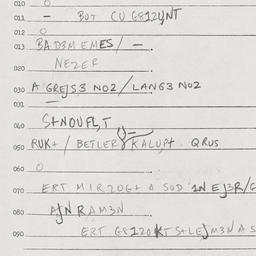 010 O
011 - BOT CU G812YNT
012 O
013 BAD3M EMES/ -
020 NEZER
030 A GREJS3 NO2 / LANG3 NO2
031
040 S+NOUFL,T
050 RUK+ / BETLER KALUP+ QRUS
060 O
070 ERT MIR2OG+ A SOD 1N EJ3R/G
080 AJN RAM3N
090 ERT G8120KT S+LEJM3N A S